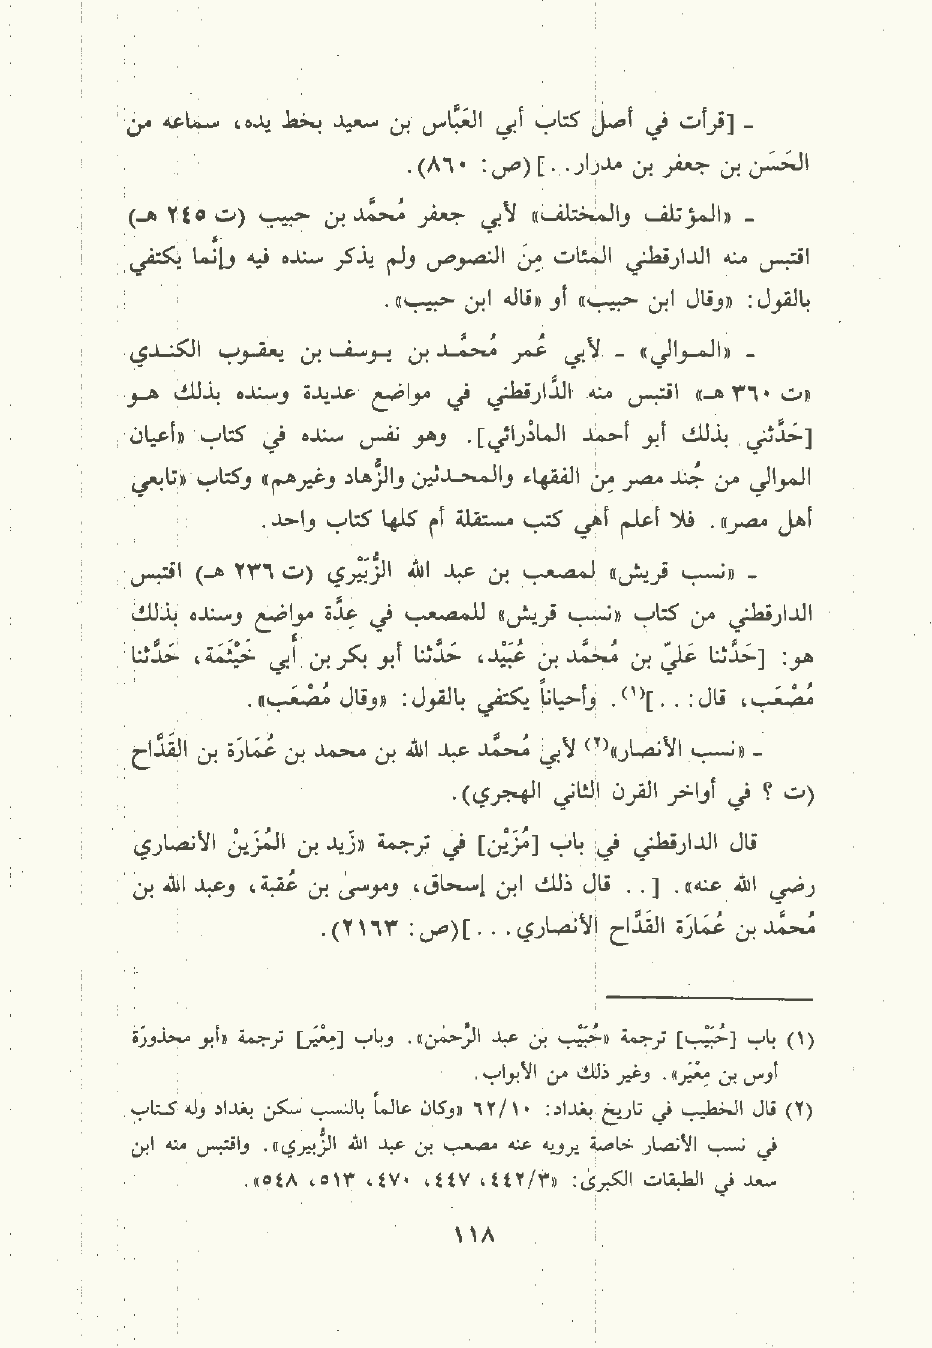 ـ [قرأت في أصل كتاب أبي العَبَّاس بن سعيد بخط يده، سماعه من
الحَسَن بن جعفر بن مدرار. .] (ص: ٨٦٠).
ـ «المؤتلف والمختلف» لأبي جعفر مُحمَّد بن حبيب (ت ٢٤٥ هـ)
اقتبس منه الدارقطني المئات مِنَ النصوص ولم يذكر سنده فيه وإنَّما يكتفي
بالقول: «وقال ابن حبيب» أو «قاله ابن حبيب».
ـ «المـوالي» ـ لأبي عُمر مُحمَّـد بن يـوسـف بن يعقـوب الكنـدي
«ت ٣٦٠ هـ» اقتبس منه الدَّارقطني في مواضع عديدة وسنده بذلك هـو
[حَدَّثني بذلك أبو أحمد المادْرائي]. وهو نفس سنده في كتاب «أعيان
الموالي من جُند مصر مِن الفقهاء والمحـدثين والزُّهاد وغيرهم» وكتاب «تابعي
أهل مصر». فلا أعلم أهي كتب مستقلة أم كلها كتاب واحد.
ـ «نسب قريش» لمصعب بن عبد الله الزُّبَيْري (ت ٢٣٦ هـ) اقتبس
الدارقطني من كتاب «نسب قريش» للمصعب في عِدَّة مواضع وسنده بذلك
هو: [حَدَّثنا عَليّ بن مُحمَّد بن عُبَيْد، حَدَّثنا أبو بكر بن أبي خَيْثَمَة، حَدَّثنا
مُصْعَب، قال: . .](١). وأحياناً يكتفي بالقول: «وقال مُصْعَب».
ـ «نسب الأنصار»(٢) لأبي مُحمَّد عبد الله بن محمد بن عُمَارَة بن القَدَّاح
(ت ؟ في أواخر القرن الثاني الهجري).
قال الدارقطني في باب [مُزَيْن] في ترجمة «زَيد بن المُزَيْن الأنصاري
رضي الله عنه». [. . قال ذلك ابن إسحاق، وموسىٰ بن عُقبة، وعبد الله بن
مُحمَّد بن عُمَارَة القَدَّاح الأنصاري. . . .](ص: ٢١٦٣).
(١) باب [حُبَيْب] ترجمة «حُبَيْب بن عبد الرَّحمٰن». وباب [مِعْيَر] ترجمة «أبو محذورَة
أوس بن مِعْيَر». وغير ذلك من الأبواب.
(٢) قال الخطيب في تاريخ بغداد: ٦٢/١٠ «وكان عالماً بالنسب سكن بغداد وله كـتاب
في نسب الأنصار خاصة يرويه عنه مصعب بن عبد الله الزُّبيري». واقتبس منه ابن
سعد في الطبقات الكبرىٰ: «٤٤٢/٣، ٤٤٧، ٤٧٠، ٥١٣، ٥٤٨».
١١٨